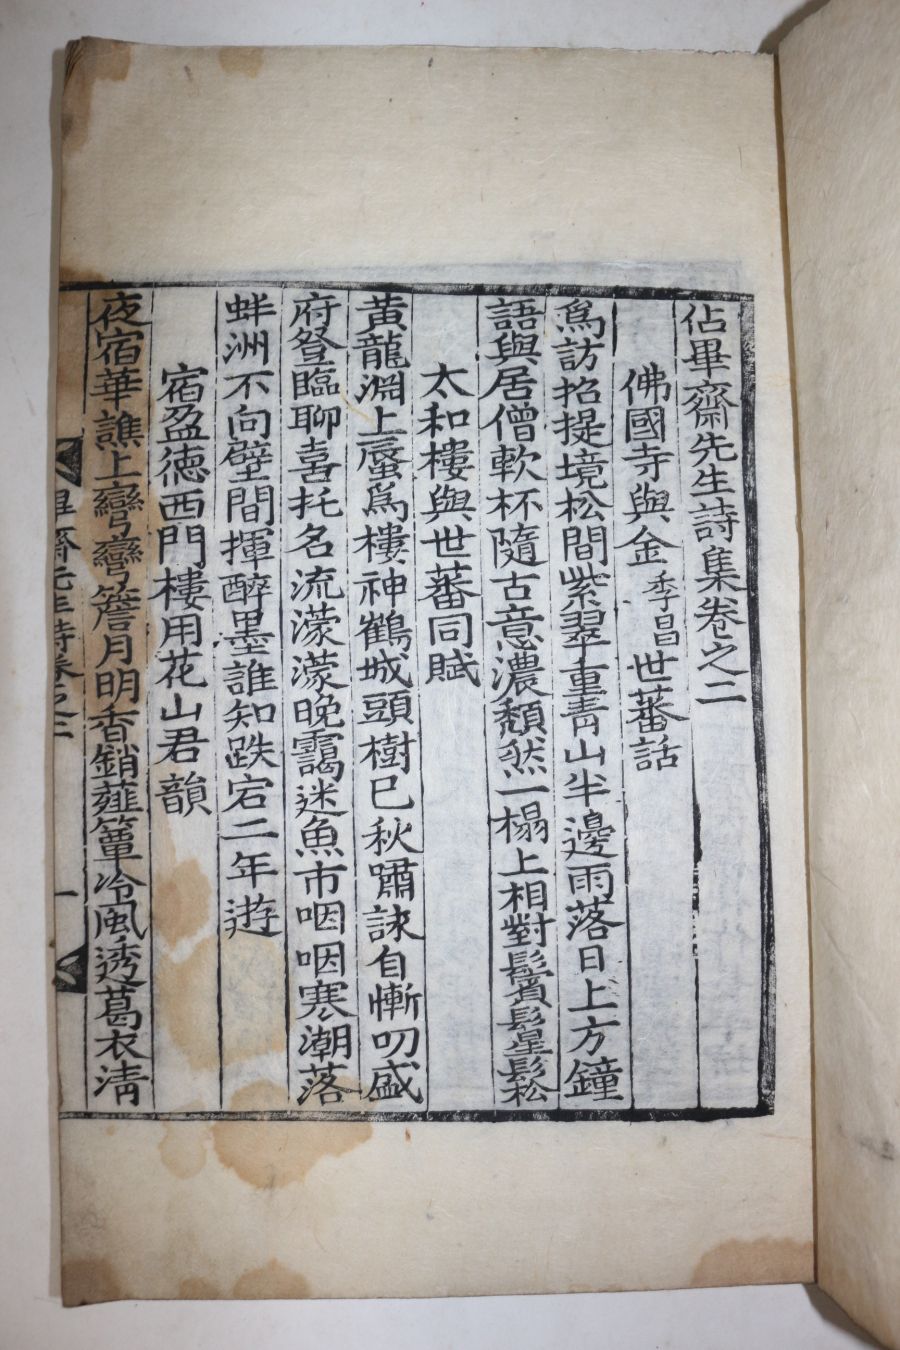 佔畢齋先生詩集卷之二
佛國寺與金季昌世蕃話
爲訪招提境松間紫翠重靑山半邊雨落日上方鐘
語與居僧軟杯隨古意濃頹然一榻上相對鬢鬅鬆
太和樓與世蕃同賦
黃龍淵上蜃爲樓神鶴城頭樹已秋嘯詠自慚叨盛
府登臨聊喜托名流濛濛晚靄迷魚市咽咽寒潮落
蚌洲不向壁間揮醉墨誰知跌宕二年遊
宿盈德西門樓用花山君韻
夜宿華譙上彎彎簷月明香銷薤簟冷風透葛衣淸
畢齋先生詩卷之二 一